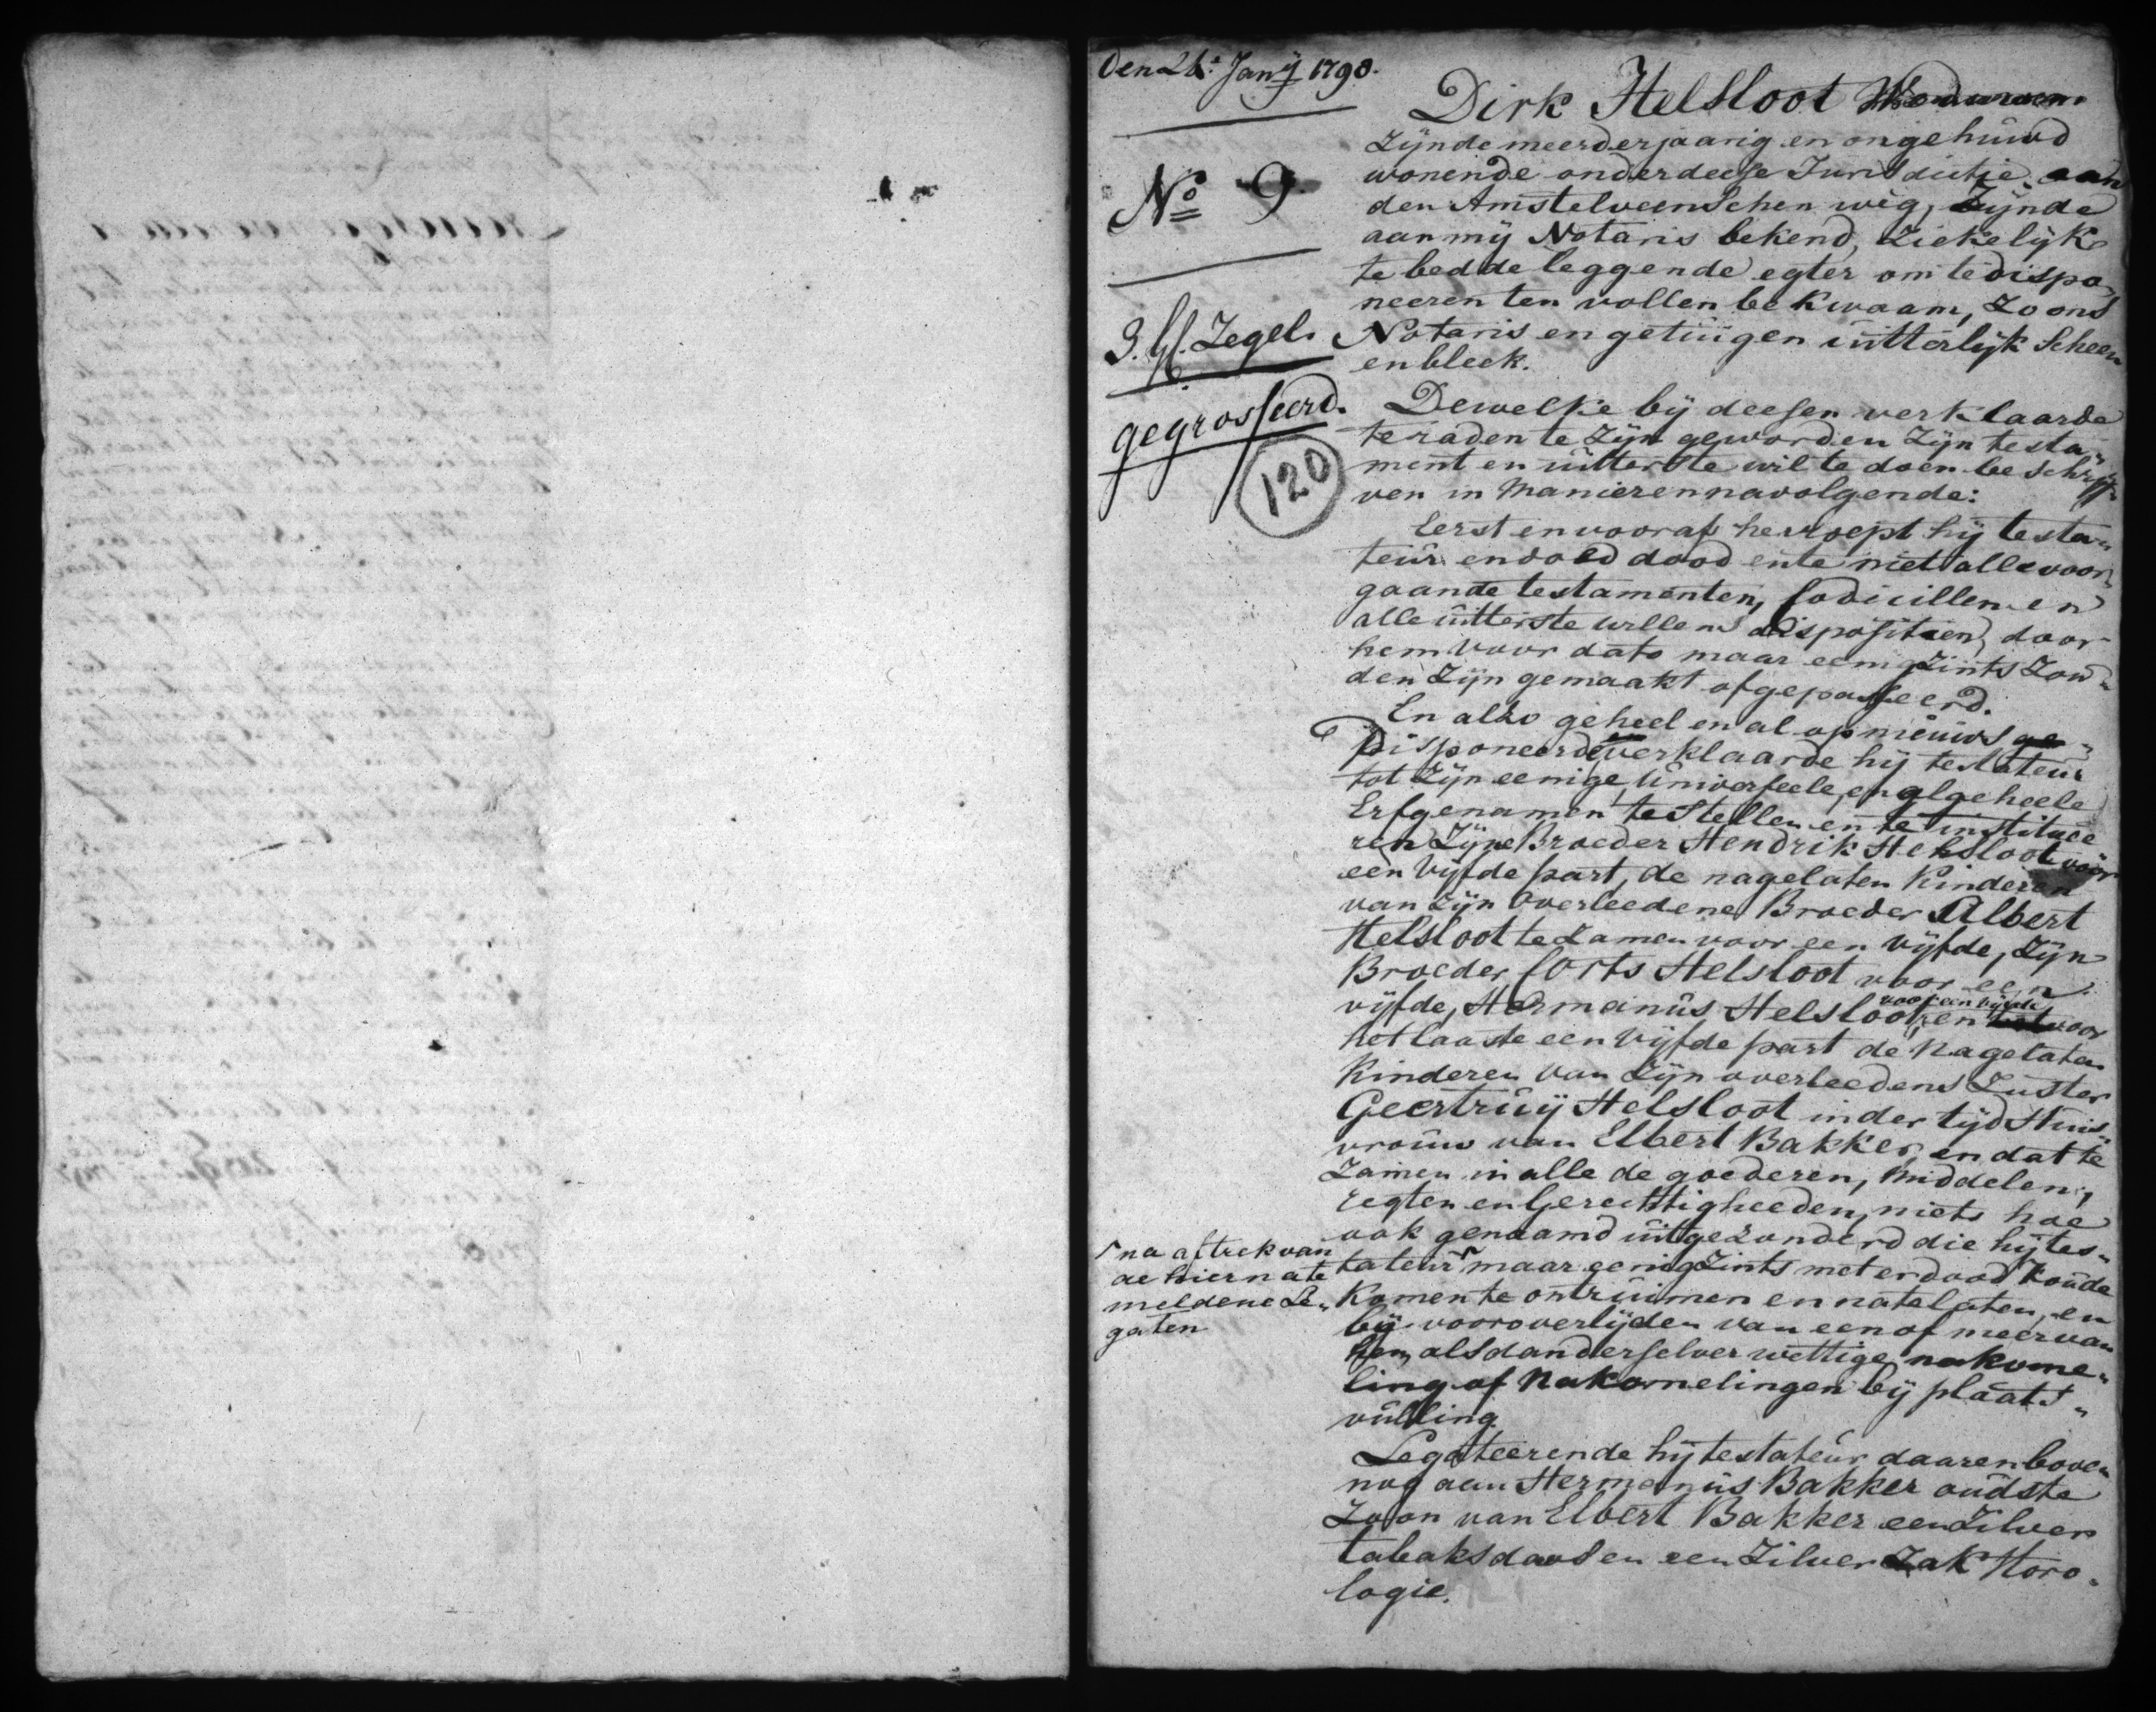 Den 26.e Janij 1798.
No 9
3. Gl. Zegel.
gegrosseerd.
120
Dirk Helsloot
zijnde meerderjaarig en ongehuwd
wonende onder deese Jurisdictie aan
den Amstelveenschen weg, Zijnde
aan mij Notaris bekend, ziekelijk
te bedde leggende egter om te dispo„
neeren ten vollen bekwaam, zo ons
Notaris en getuigen uitterlijk scheen
en bleek.
Dewelke bij deesen verklaarde
te raden te zijn geworden zijn testa„
ment en uitterste wil te doen beschrij„
ven in manieren navolgende:
Eerst en vooraf herroept hij testa„
teur en doed dood en te niet alle voor„
gaande testamenten, Codicillen en
alle uitterste willens dispositien, door
hem voor dato maar eenigzints zou„
den zijn gemaakt of gepasseerd.
En alzo geheel en al op nieuws ge„
Disponeerd verklaarde hij testateur
tot zijn eenige, universeele, en algeheele
Erfgenamen te stellen en te institueë
ren Zijne Broeder Hendrik Helsloot voor
een vijfde part, de nagelaten Kinderen
van zijn overleedene Broeder Albert
Helsloot te zamen voor een vijfde, zijn
Broeder Corts Helsloot voor een
vijfde, Hermanus Helsloot voor een vijfde, en voor
het laaste een vijfde part de nagelaten
Kinderen van zijn overleedene Zuster
Geertruij Helsloot in der tijd Huis„
vrouw van Elbert Bakker, en dat te
zamen in alle de goederen, middelen,
regten en Gerechtigheeden, niets hoe
ook genaamd uitgezonderd die hij tes„
tateur maar eenigzints met er dood zoude
komen te ontruimen en natelaten, en
bij vooroverlijden van een of meer van
hen, als dan derselver wettige nakome„
ling of Nakomelingen bij plaats„
vulling.
na aftrek van
de hier nate
meldene Le„
gaten
Legateerende hij testateur daarenboven
nog aan Hermanus Bakker oudste
Zoon van Elbert Bakker een Zilver
tabaksdoos en een Zilver Zak Horo„
logie.